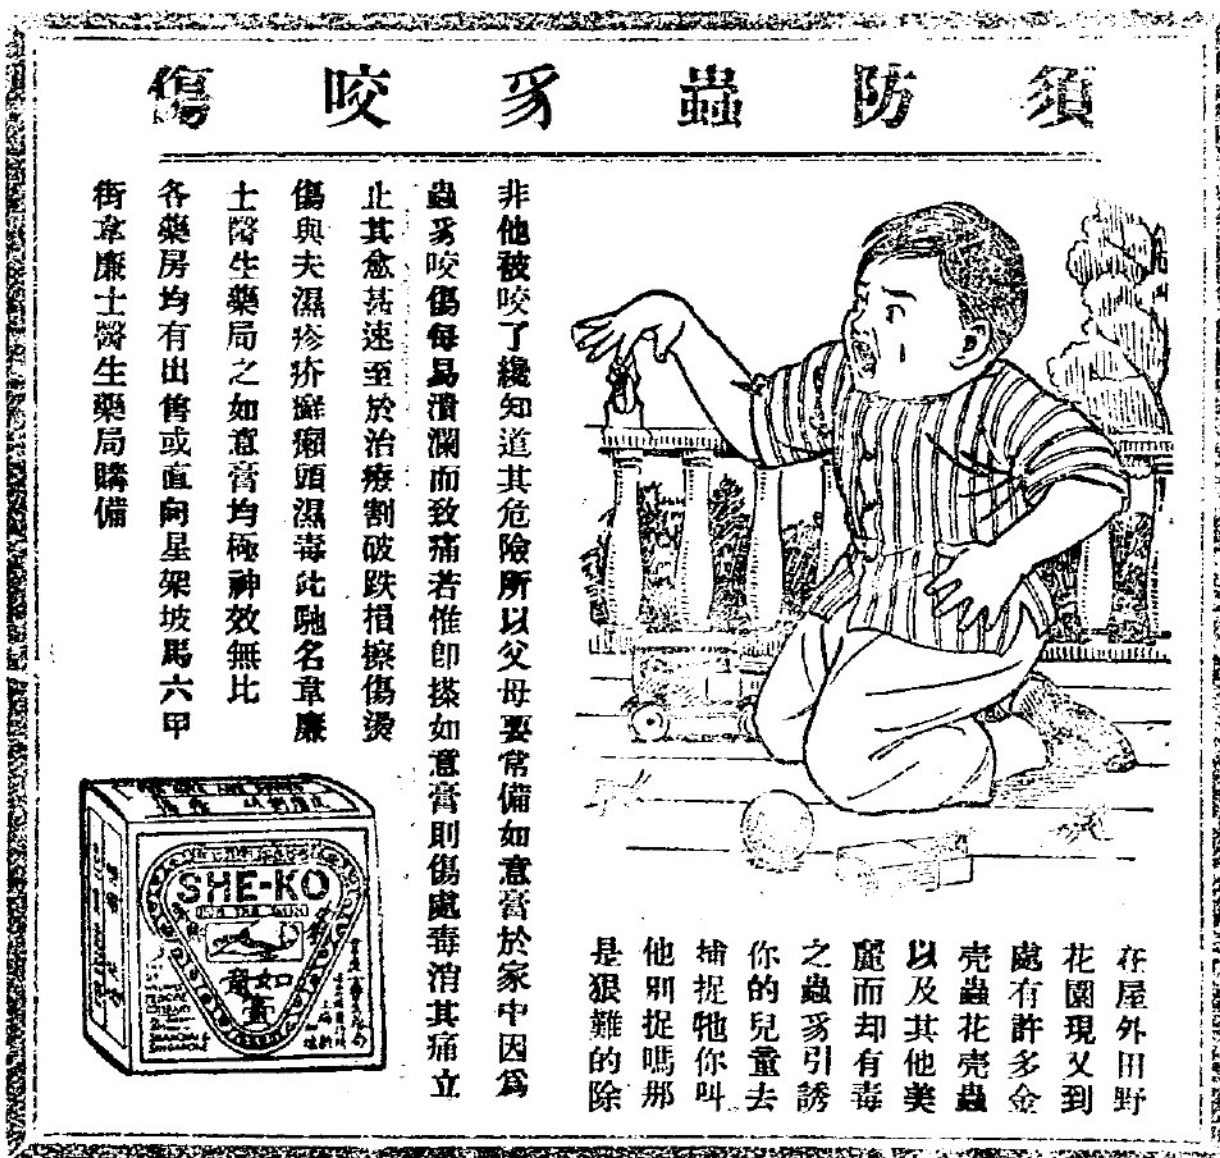 須防蟲豸咬傷
在屋外田野
花園現又到
處有許多金
壳蟲花壳蟲
以及其他美
麗而却有毒
之蟲豸引誘
你的兒童去
捕捉牠你叫
他別捉嗎那
是狠難的除
非他被咬了纔知道其危險所以父母要常備如意膏於家中因爲
蟲豸咬傷每易潰瀾而致痛若惟即搽如意膏則傷處毒消其痛立
止其愈甚速至於治療割破跌損擦傷燙
傷與夫濕疹疥癬癩頭濕毒此馳名韋廉
士醫生藥局之如意膏均極神效無比
各藥房均有出售或直向星架坡馬六甲
街韋廉士醫生藥局購備
SHE-KO
如意膏